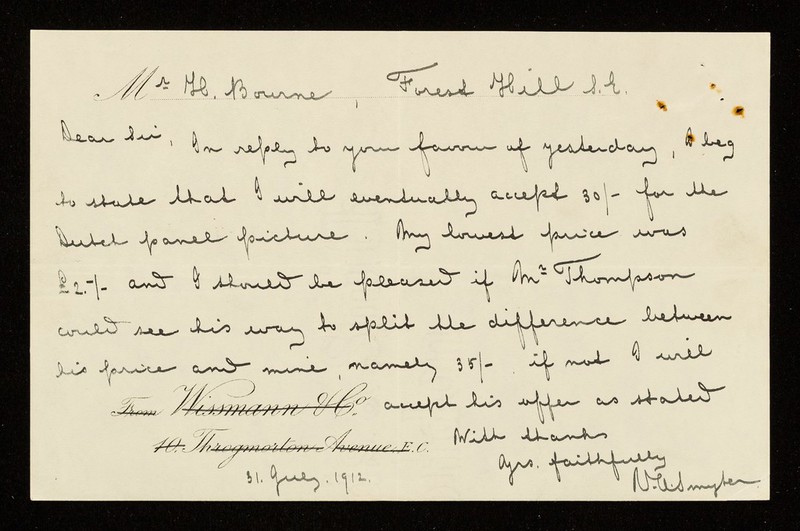 Mr H. Bourne, Forest Hill S.E.
Dear Sir, In reply to your favour of yesterday, I beg
to state that I will eventually accept 30/- for the
Dutch panel picture. My lowest price was
£2.-/- and I should be pleased if Mr Thompson
could see his way to split the difference between
his price and mine, namely 35/-. if not I will
From Wissmann & Co. accept his offer as stated
10. Throgmorton Avenue. E.C. With thanks
Yrs. faithfully
31. July. 1912.